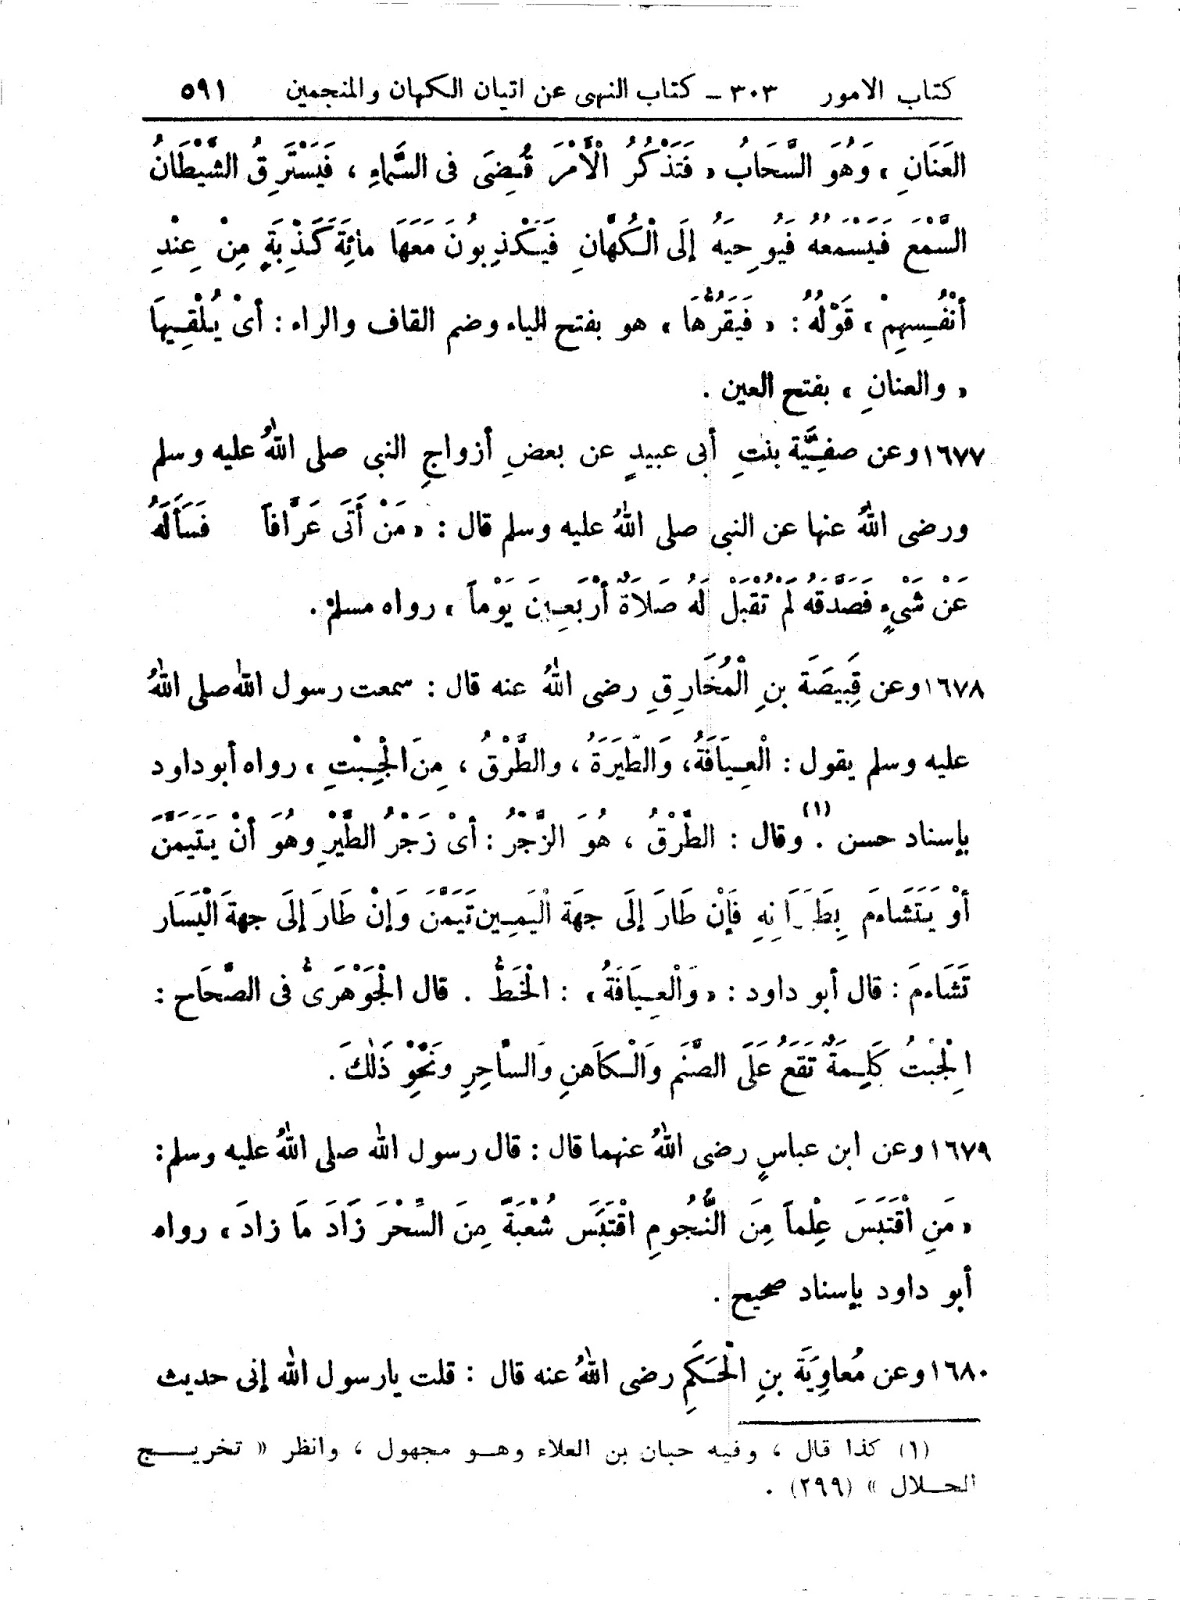 كتاب الامور ٣٠٣ ــ كتاب النهى عن اتيان الكهان والمنجمين ٥٩١
العَنَانِ ، وَهُوَ السَّحَابُ « فَتَذْكُرُ الْأَمْرَ قُضِىَ فى السَّماءِ ، فَيَسْتَرِقُ الشَّيْطَانُ
السَّمْعَ فَيَسْمَعُهُ فَيُوحِيَهُ إلَى الْكُهَّانِ فَيَكْذِبُونَ مَعَهَا مائَةَ كَذْبَةٍ مِنْ عِنْدِ
أنْفُسِهِمْ ، قَوْلُهُ : « فَيَقُرُّهَا ، هو بفتح الياء وضم القاف والراء : أىْ يُلْقِيهَا
« والعنانِ ، بفتح العين .
١٦٧٧ وعن صفِيَّة بنتِ أبى عبيدٍ عن بعضِ أزواجِ النبى صلى اللهُ عليه وسلم
ورضى اللهُ عنها عن النبى صلى اللهُ عليه وسلم قال : « مَنْ أَتَى عَرَّافاً فَسَأَلَهُ
عَنْ شَىْءٍ فَصَدَّقَهُ لَمْ تُقْبَلْ لَهُ صَلاَةُ أرْبَعِينَ يَوْماً ، رواه مسلمْ .
١٦٧٨ وعن قَبِيصَة بنِ الْمُخَارِقِ رضى اللهُ عنه قال : سمعت رسول الله صلى اللهُ
عليه وسلم يقول : الْعِيَافَةُ ، وَالطِّيَرَةُ ، والطَّرْقُ ، مِنَ الْجِبْتِ ، رواه أبو داود
بإسناد حسن . (١) وقال : الطَّرْقُ ، هُوَ الزَّجْرُ : أىْ زَجْرُ الطَّيْرِ وهُوَ أنْ يَتَيَمَّنَ
أوْ يَتَشَاءمَ بِطَيَرَانِهِ فَإنْ طَارَ إلَى جهَة اليَمِين تَيَمَّنَ وَإنْ طَارَ إلَى جهةَ الْيَسَار
تَشَاءمَ : قال أبو داود : « وَالْعِيَافَةُ ، : الْخَطُّ . قال الْجَوْهَرىُّ فى الصِّحَاح :
الْجبْتُ كَلِمَةٌ تَقَعُ عَلَى الصَّنَم وَالْكاَهنِ والسَّاحِرِ ونَحْوِ ذَلكَ .
١٦٧٩ وعن ابن عباسٍ رضى اللهُ عنهما قال : قال رسول الله صلى اللهُ عليه وسلم :
« مَنِ اْقتَبَسَ عِلْماً مِنَ النُّجُومِ اقْتَبَسَ شُعْبَةً مِنَ السِّحْرَ زَادَ مَا زادَ ، رواه
أبو داود بإسناد صحيح .
١٦٨٠ وعن مُعاوِيَةَ بنِ الْحَكَمِ رضى اللهُ عنه قال : قلت يارسول الله إنى حديث
(١) كذا قال ، وفيه حبان بن العلاء وهو مجهول ، وانظر « تخريج
الحلال » (٢٩٩) .